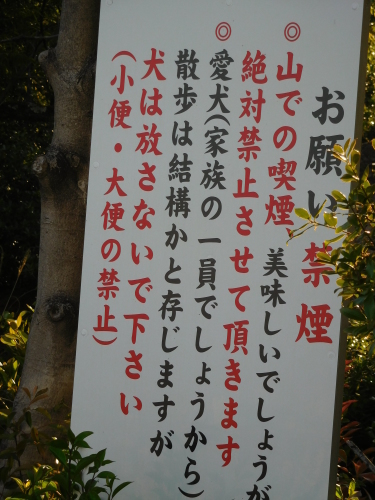 お願い 禁煙
◎山での喫煙 美味しいでしょうが
絶対禁止させて頂きます
◎愛犬(家族の一員でしょうから)
散歩は結構かと存じますが
犬は放さないで下さい
(小便・大便の禁止)